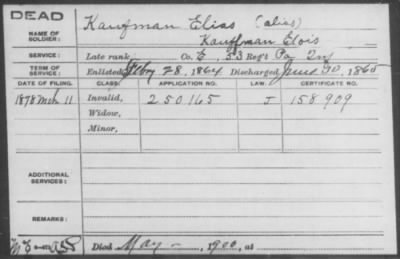 DEAD
NAME OF SOLDIER: Kaufman Elias (alias)
Kauffman Elois
SERVICE: Late rank, Co. E, 53 Reg't Pa Inf
TERM OF SERVICE: Enlisted Feby 28, 1864, Discharged June 30, 1865
DATE OF FILING. CLASS. APPLICATION NO. LAW. CERTIFICATE NO.
1878 Mch 11 Invalid, 250165 J 158909
Widow,
Minor,
ADDITIONAL SERVICES:
REMARKS:
Died May - , 1900, at